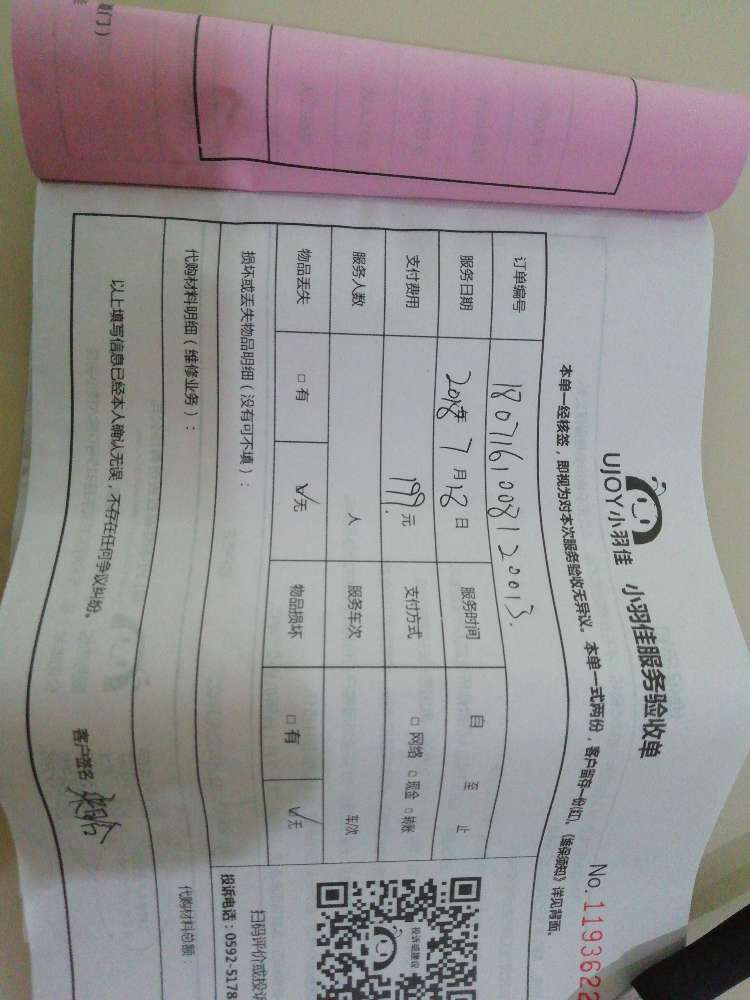 UJOY小羽佳 小羽佳服务验收单
No. 1193622
本单一经核签,即视为对本次服务验收无异议。本单一式两份,客户留存一份(红)。《维保须知》详见背面。
订单编号 180716100812 0013.
服务日期 2018年 7 月 18 日 服务时间 自 至 止
支付费用 199. 元 支付方式 □ 网络 □ 现金 □ 转账
服务人数 人 服务车次 车/次
物品丢失 □ 有 ☑ 无 物品损坏 □ 有 ☑ 无
损坏或丢失物品明细(没有可不填):
代购材料明细(维修业务): 代购材料总额:
以上填写信息已经本人确认无误,不存在任何争议纠纷。
客户签名:
投诉或建议
扫码评价或投诉
投诉电话:0592-5178